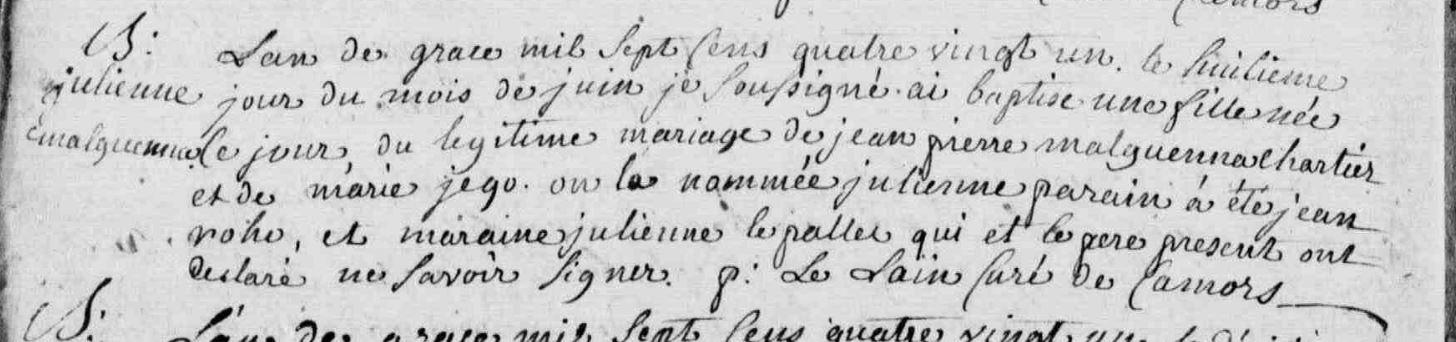 Camors
B:
julienne
malguenna
Lan de grace mil sept cens quatre vingt un. le huitieme
jour du mois de juin je soussigné ai baptisé une fille née
ce jour du legitime mariage de jean pierre malguenna chartier
et de marie jego. on la nommée julienne parain à été jean
roho, et maraine julienne le pallec qui et le pere present ont
declaré ne savoir signer. p: Le Lain curé de Camors
B:
L'an de grace mil sept cens quatre vingt un